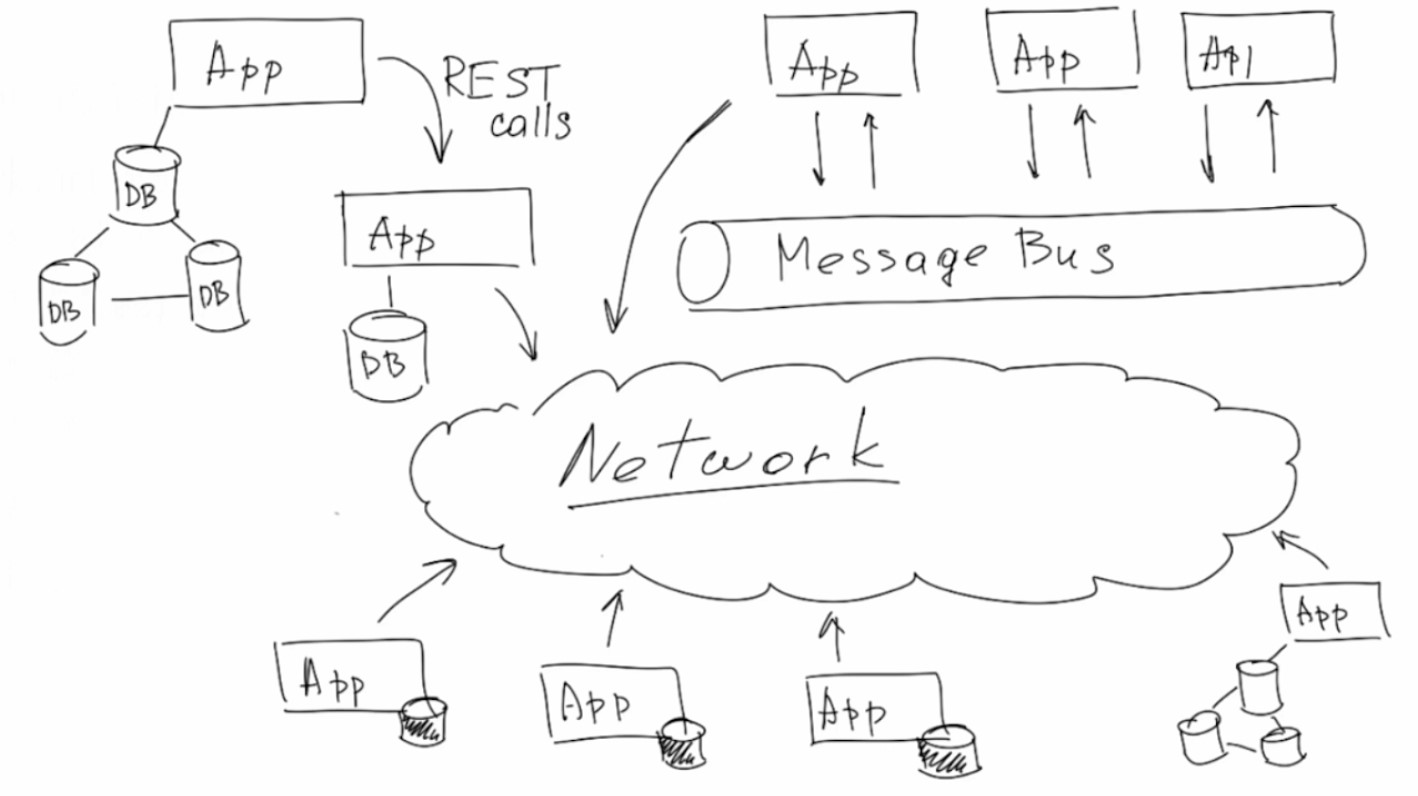 App
REST
calls
DB
DB
DB
App
DB
App
App
App
Message Bus
Network
App
App
App
App